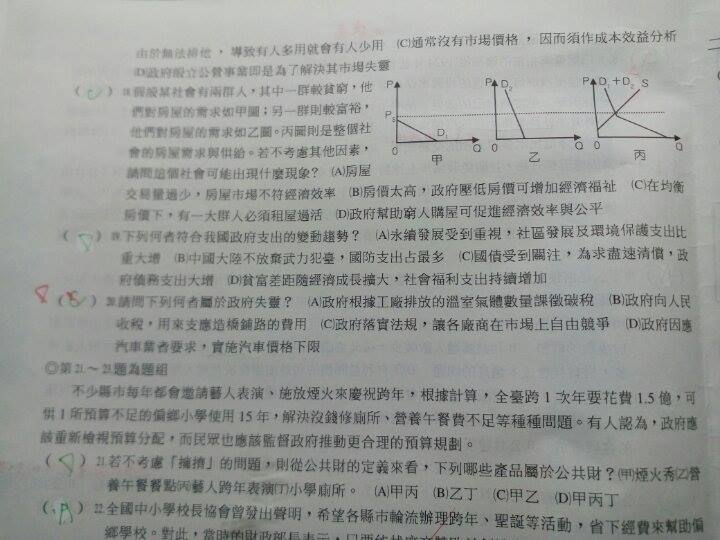 由於無法排他，導致有人多用就會有人少用　(C)通常沒有市場價格，因而須作成本效益分析
(D)政府設立公營事業即是為了解決其市場失靈
(　)18.假設某社會有兩群人，其中一群較貧窮，他
們對房屋的需求如甲圖；另一群則較富裕，
他們對房屋的需求如乙圖。丙圖則是整個社
會的房屋需求與供給。若不考慮其他因素，
請問這個社會可能出現什麼現象？ (A)房屋
P P P
D₂ D₁+D₂ S
P₀ D₁
0 Q 0 Q 0 Q
甲 乙 丙
交易量過少，房屋市場不符經濟效率　(B)房價太高，政府壓低房價可增加經濟福祉　(C)在均衡
房價下，有一大群人必須租屋過活　(D)政府幫助窮人購屋可促進經濟效率與公平
(　)19.下列何者符合我國政府支出的變動趨勢？　(A)永續發展受到重視，社區發展及環境保護支出比
重大增　(B)中國大陸不放棄武力犯臺，國防支出占最多　(C)國債受到關注，為求盡速清償，政
府債務支出大增　(D)貧富差距隨經濟成長擴大，社會福利支出持續增加
(　)20.請問下列何者屬於政府失靈？　(A)政府根據工廠排放的溫室氣體數量課徵碳稅　(B)政府向人民
收稅，用來支應造橋鋪路的費用　(C)政府落實法規，讓各廠商在市場上自由競爭　(D)政府因應
汽車業者要求，實施汽車價格下限
◎第21.～23.題為題組
不少縣市每年都會邀請藝人表演、施放煙火來慶祝跨年，根據計算，全臺跨1次年要花費1.5億，可
供1所預算不足的偏鄉小學使用15年，解決沒錢修廁所、營養午餐費不足等種種問題。有人認為，政府應
該重新檢視預算分配，而民眾也應該監督政府推動更合理的預算規劃。
(　)21.若不考慮「擁擠」的問題，則從公共財的定義來看，下列哪些產品屬於公共財？(甲)煙火秀(乙)營
養午餐餐點(丙)藝人跨年表演(丁)小學廁所。　(A)甲丙　(B)乙丁　(C)甲乙　(D)甲丙丁
(A)22.全國中小學校長協會曾發出聲明，希望各縣市輪流辦理跨年、聖誕等活動，省下經費來幫助偏
鄉學校。對此，當時的財政部長表示，只要他